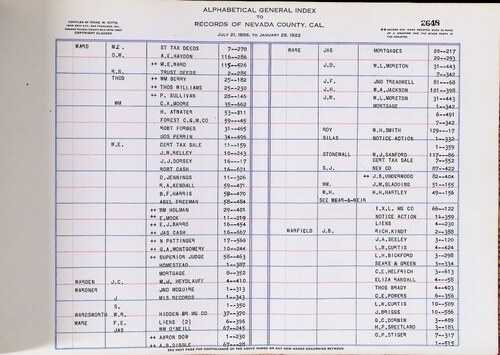 ALPHABETICAL GENERAL INDEX
TO
RECORDS OF NEVADA COUNTY, CAL.
JULY 21, 1856, TO JANUARY 26, 1922
COPYRIGHT CLAIMED
2648
WARD M.E. ST TAX DEEDS 7-270
D.W. A.E. HAYDON 116-286
++ M.E. WARD 115-526
R.N. TRUST DEEDS 2-285
THOS ++ WM BERRY 2-182
++ THOS WILLIAMS 25-230
++ P. SULLIVAN 28-146
WM C.A. MOORE 35-662
H. ATWATER 53-211
FOREST C.G.M.CO 59-45
ROBT FORBES 31-465
JOS PERRIN 36-496
W.E. CERT TAX SALE 11-159
J.R. KELLEY 16-243
J.J. DORSEY 16-17
ROBT CASH 16-671
D. JENNINGS 11-326
R.A. KENDALL 59-471
B.F. HARRIS 59-470
ABEL FREEMAN 58-484
++ WM HOLMAN 29-401
++ E. MOCK 11-219
++ E.J. BARRO 16-454
++ JAS CASH 16-667
++ N PATTINGER 17-566
++ G.A. MONTGOMERY 10-244
++ SUPERIOR JUDGE 58-463
HOMESTEAD 1-387
MORTGAGE 8-352
WARDEN J.C. M.J. HEYDLAUFF 4-410
WARDNER JNO MCGUIRE 1-313
J MIL RECORDS 1-343
S. 1-350
WARDSWORTH W.R. HIDDEN BR MG CO 37-370
WARE F.E. LIENS (2) 6-396
JAS WM O'NEILL 67-245
++ AARON DOW 1-230
++ A.R. DIBBLE 67-28
WARE JAS MORTGAGES 20-217
20-293
J.D. W.L. MORETON 31-443
7-342
J.F. JNO TREADWELL 81-68
J.H. W.A. JACKSON 101-398
J.M. W.L. MORETON 31-443
MORTGAGE 1-342
6-491
7-342
ROY W.H. SMITH 129-17
SILAS NOTICE ACTION 1-332
1-359
STONEWALL W.J. SANFORD 117-86
CERT TAX SALE 7-552
S.J. NEV CO 87-422
++ J.B. UNDERWOOD 82-404
WM. J.M. GLADDING 51-155
W.H. H.H. HARTLEY 49-156
SEE WEAR-&-WEIR
I.X.L. MG CO 66-122
NOTICE ACTION 1-359
LIENS 2-230
WARFIELD J.B. RICH. KINDT 2-388
J.A. SEELEY 3-120
L.B. CURTIS 6-424
L.H. BICKFORD 3-298
SEARS & GREEN 3-234
C.E. HELFRICH 3-613
ELIZA RANDALL 4-58
THOS BRADY 4-403
C.E. POWERS 6-356
L.H. CURTIS 10-509
J. BRIGGS 10-586
G.C. CORWIN 3-409
H.P. SWEETLAND 3-183
O.P. STIGER 7-317
1-515